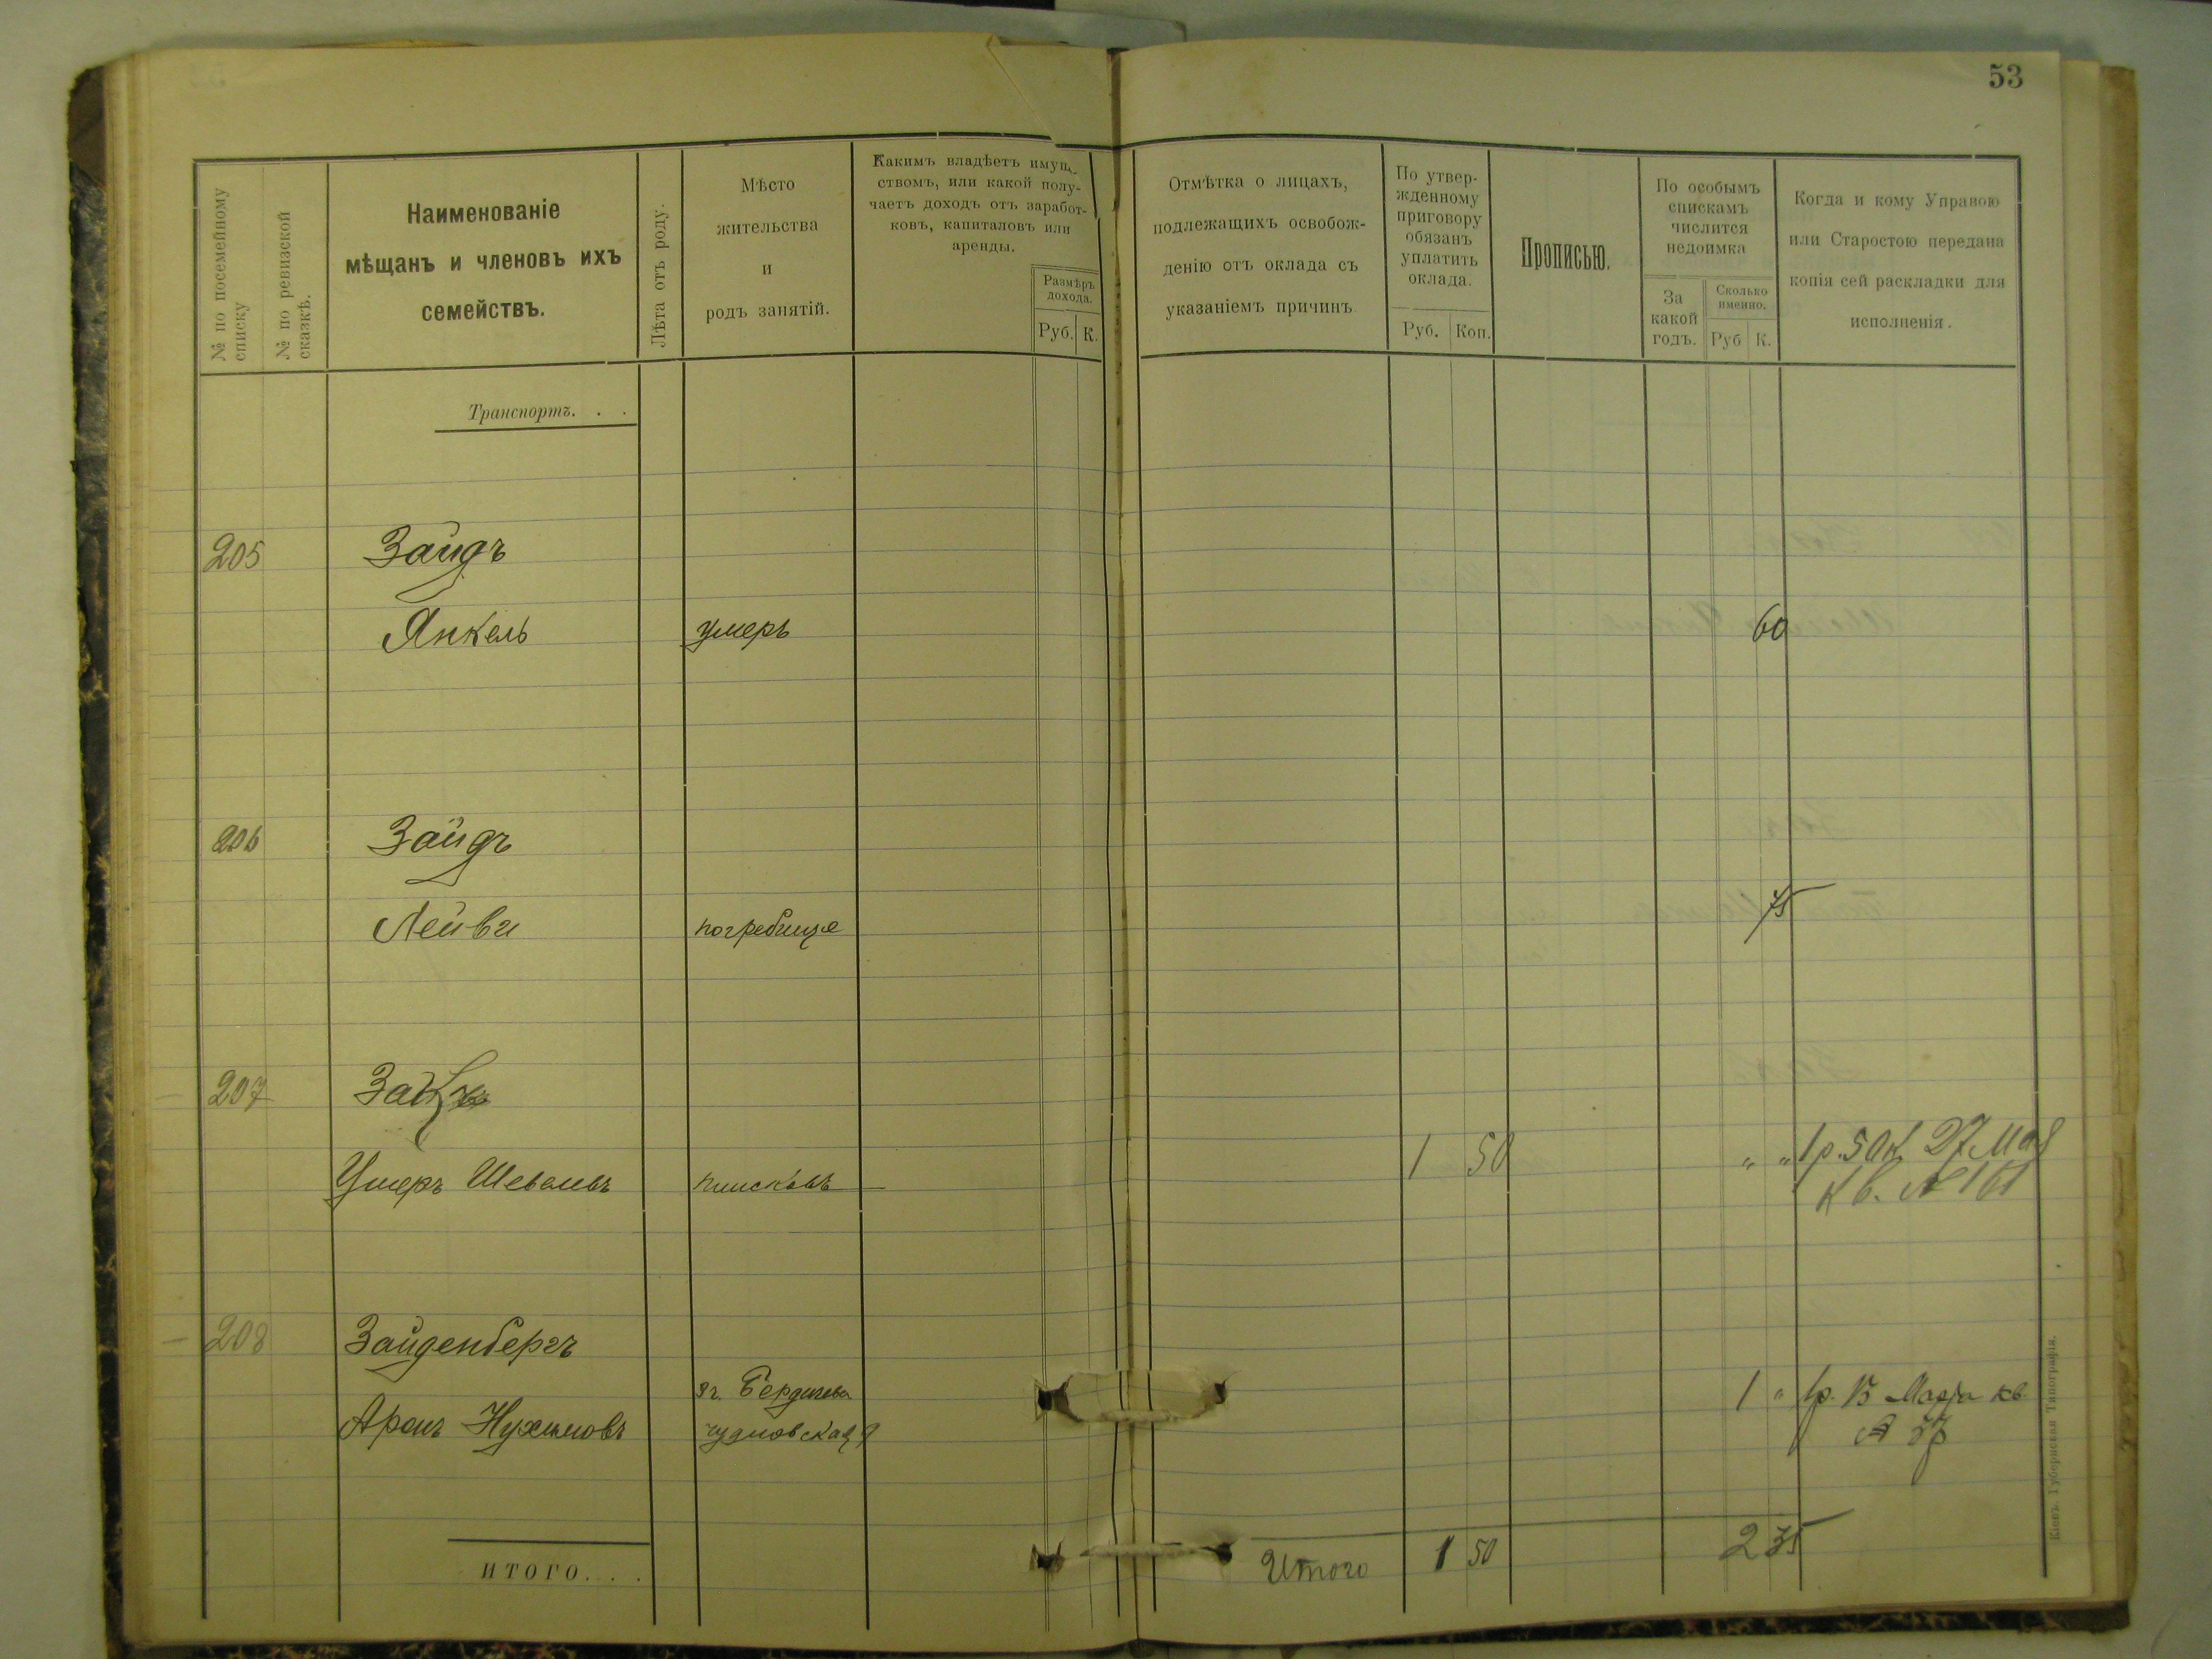 53
№ по посемейному списку
№ по ревизской сказкѣ.
Наименованіе
мѣщанъ и членовъ ихъ
семействъ.
Лѣта отъ роду.
Мѣсто
жительства
и
родъ занятій.
Какимъ владѣетъ имущ-
ствомъ, или какой полу-
чаетъ доходъ отъ заработ-
ковъ, капиталовъ или
аренды.
Размѣръ
дохода.
Руб. К.
Отмѣтка о лицахъ,
подлежащихъ освобож-
денію отъ оклада съ
указаніемъ причинъ
По утвер-
жденному
приговору
обязанъ
уплатить
оклада.
Руб. Коп.
Прописью.
По особымъ
спискамъ
числится
недоимка
За
какой
годъ.
Сколько
именно.
Руб К.
Когда и кому Управою
или Старостою передана
копія сей раскладки для
исполненія.
Транспортъ. . .
205 Зайдъ
Янкель умеръ 60
206 Зайдъ
75
Лейви погребище
207
1 50 „ „ 1р. 50к. 27 Мая
Умеръ Шевелевъ кв. № 161
208 Зайденбергъ
г. Бердичева 1 „ 1р. 15 Марта кв
Аронъ Нухимовъ чудновская
Итого 1 50 2 35
ИТОГО. . .
Кіевъ. Губернская Типографія.